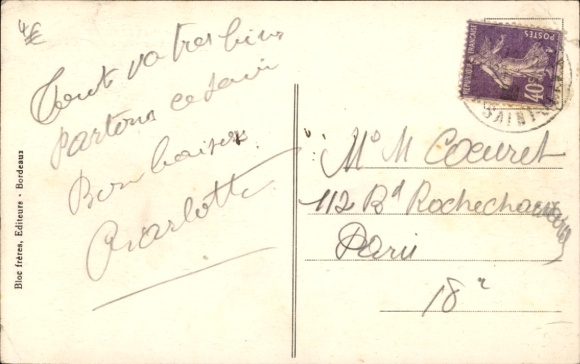 4€
Tout va très bien
Partons ce soir
Bons baisers
Charlotte
Bloc frères, Editeurs - Bordeaux
REPUBLIQUE FRANÇAISE
POSTES
40c
SAINT-
M. M Cœuret
112 Bd Rochechouart
Paris
18e